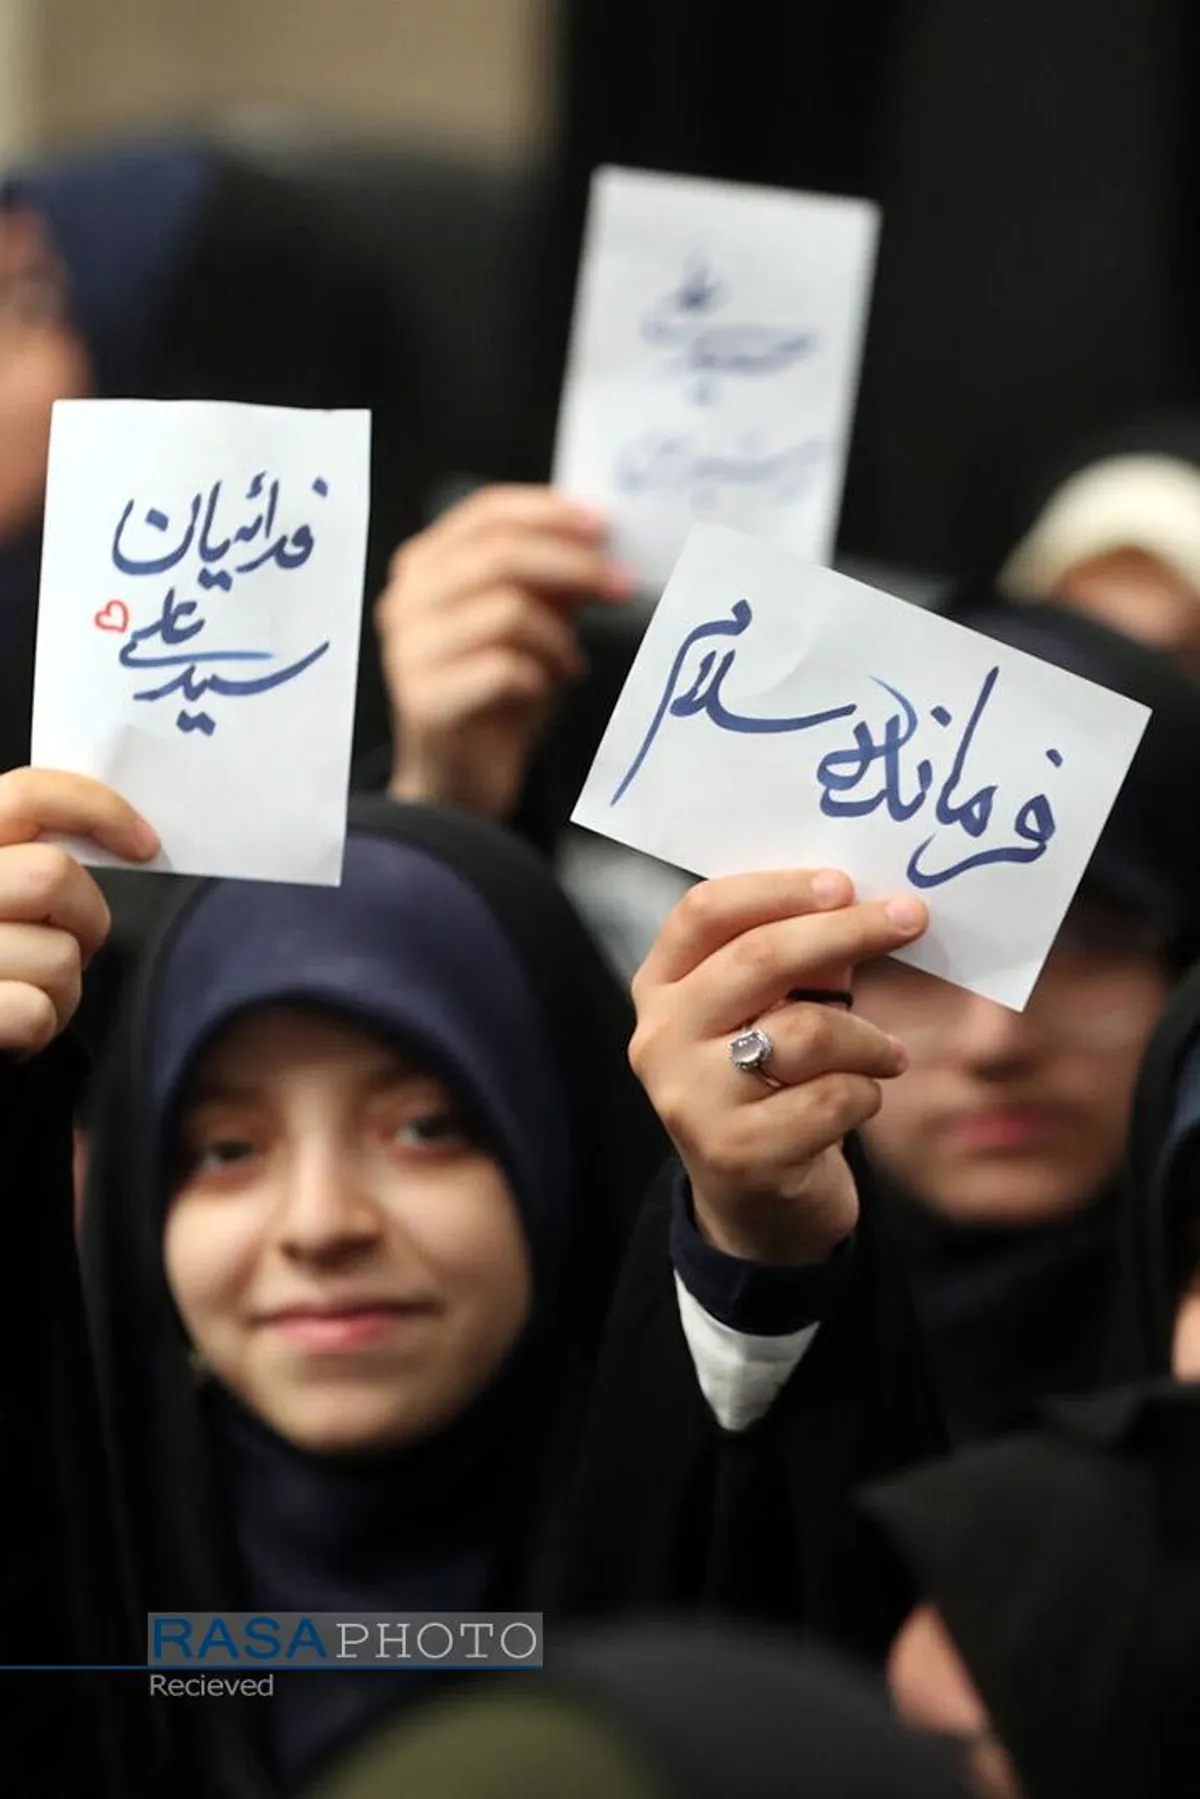 فدائیان
سید علی
فرمانده سلام
RASA PHOTO
Recieved